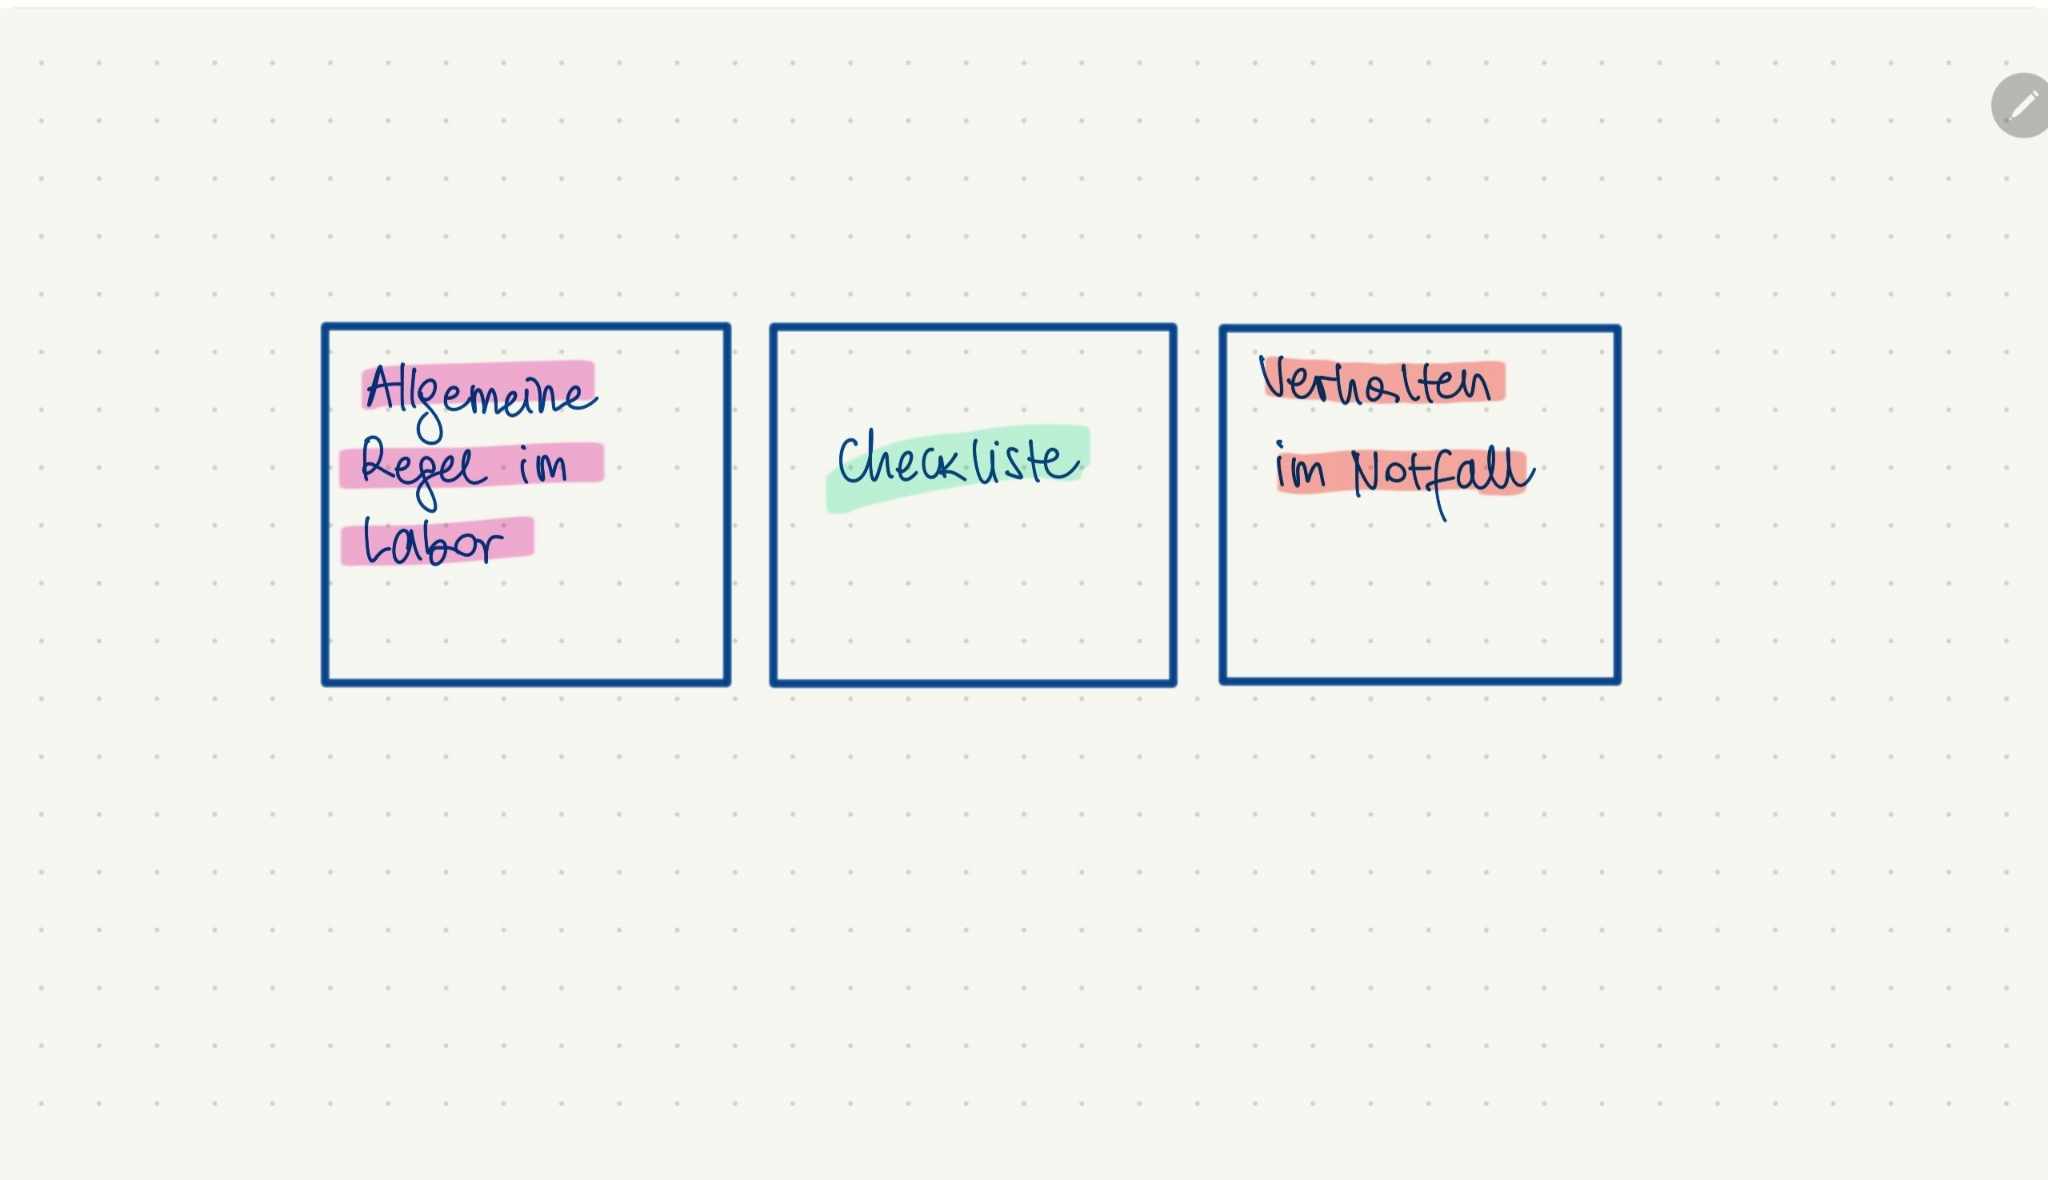 Allgemeine
Regel im
Labor
Checkliste
Verhalten
im Notfall